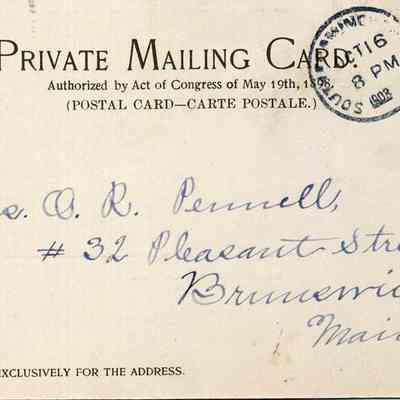 PRIVATE MAILING CARD.
Authorized by Act of Congress of May 19th, 1898.
(POSTAL CARD—CARTE POSTALE.)
OCT 16
8 PM
1903
s. O. R. Pennell,
# 32 Pleasant Stre
Brunswi
Main
EXCLUSIVELY FOR THE ADDRESS.